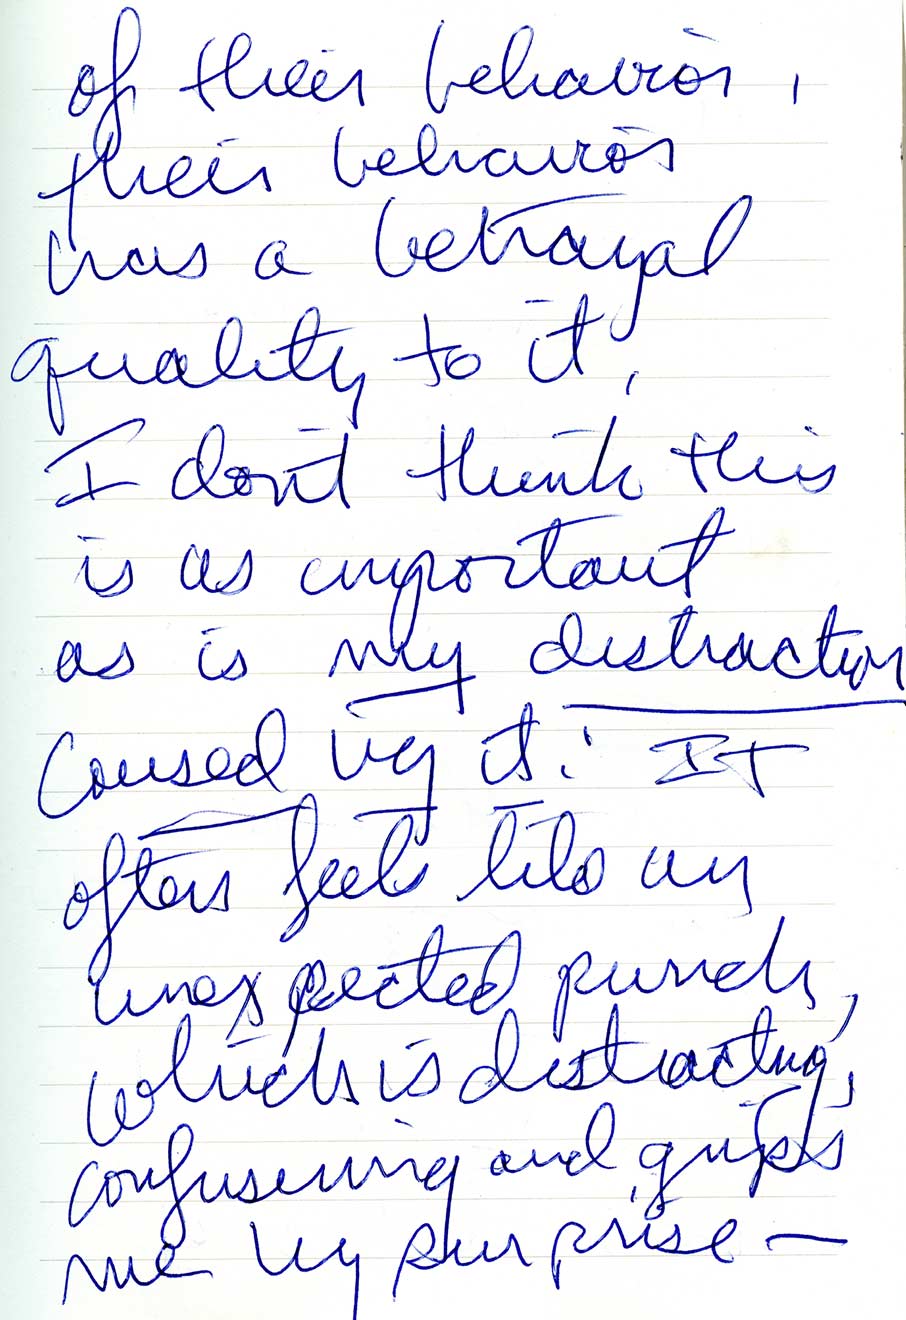 of their behavior,
their behavior
has a betrayal
quality to it.
I don't think this
is as important
as is my distraction
caused by it: It
often feels like an
unexpected punch,
which is distracting,
confusing and grips
me by surprise —